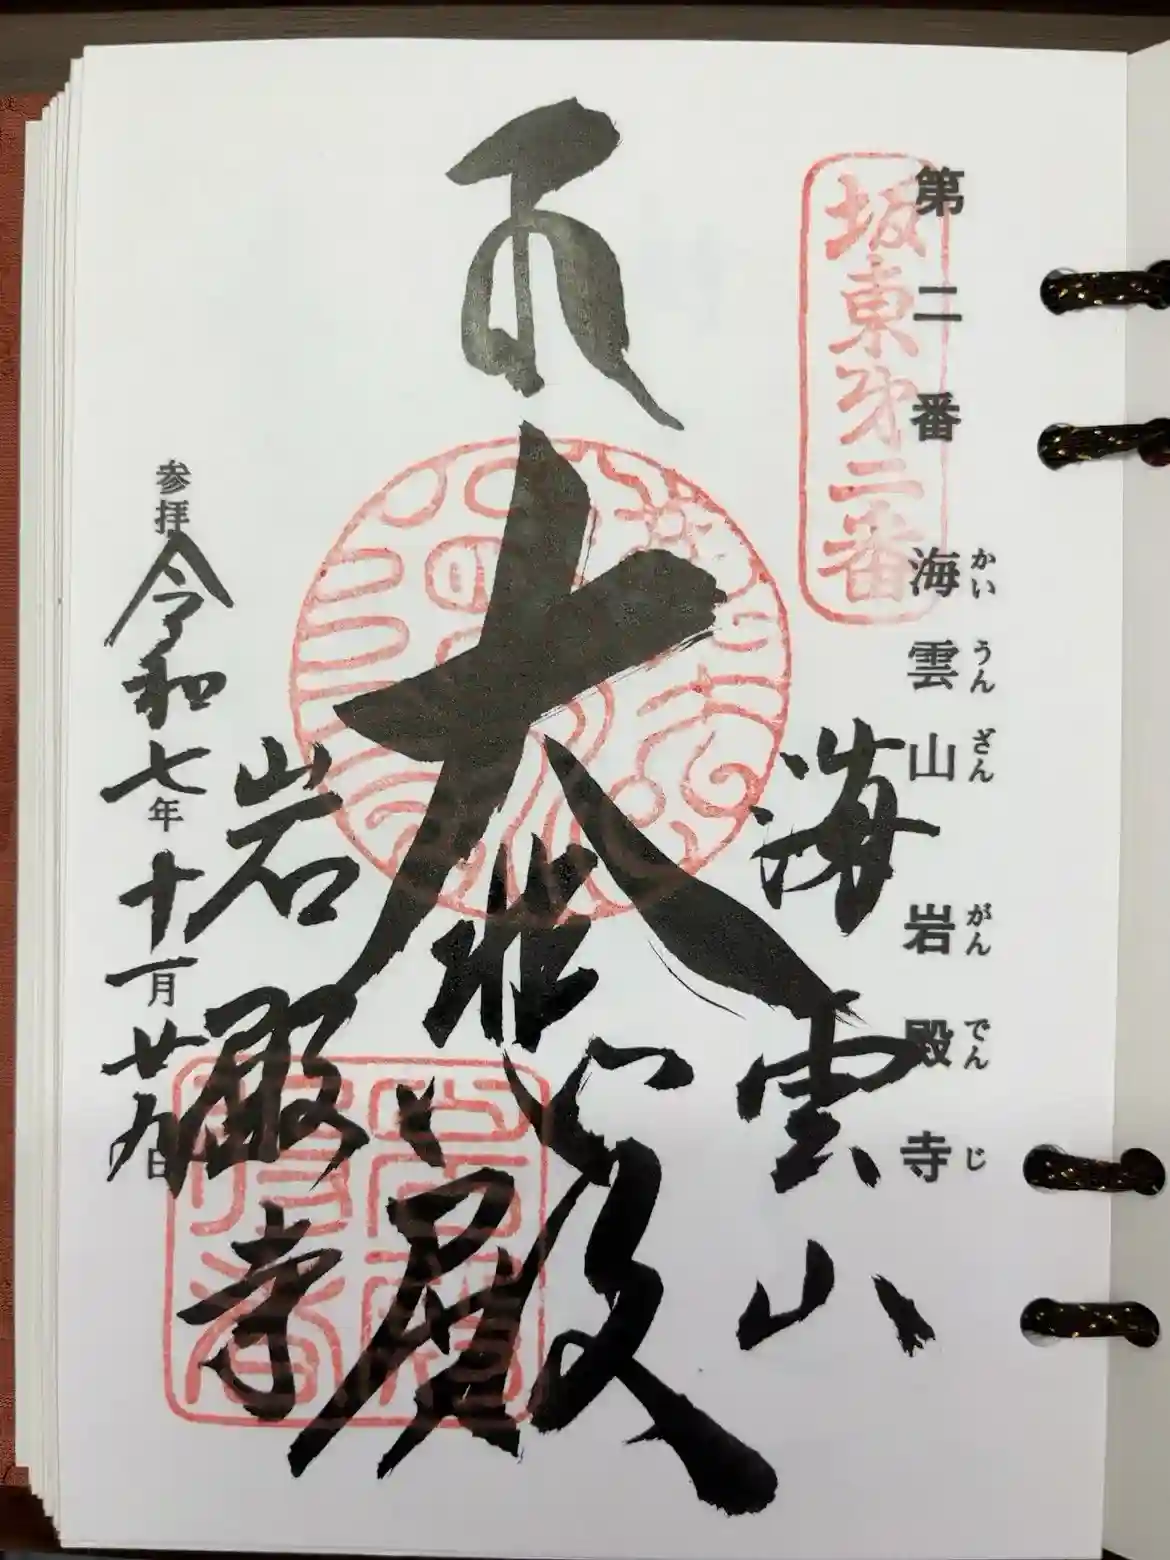 第二番 海雲山 岩殿寺
かいうんざん がんでんじ
坂東第二番
海雲山
大悲殿
岩殿寺
参拝 令和七年十一月廿九日